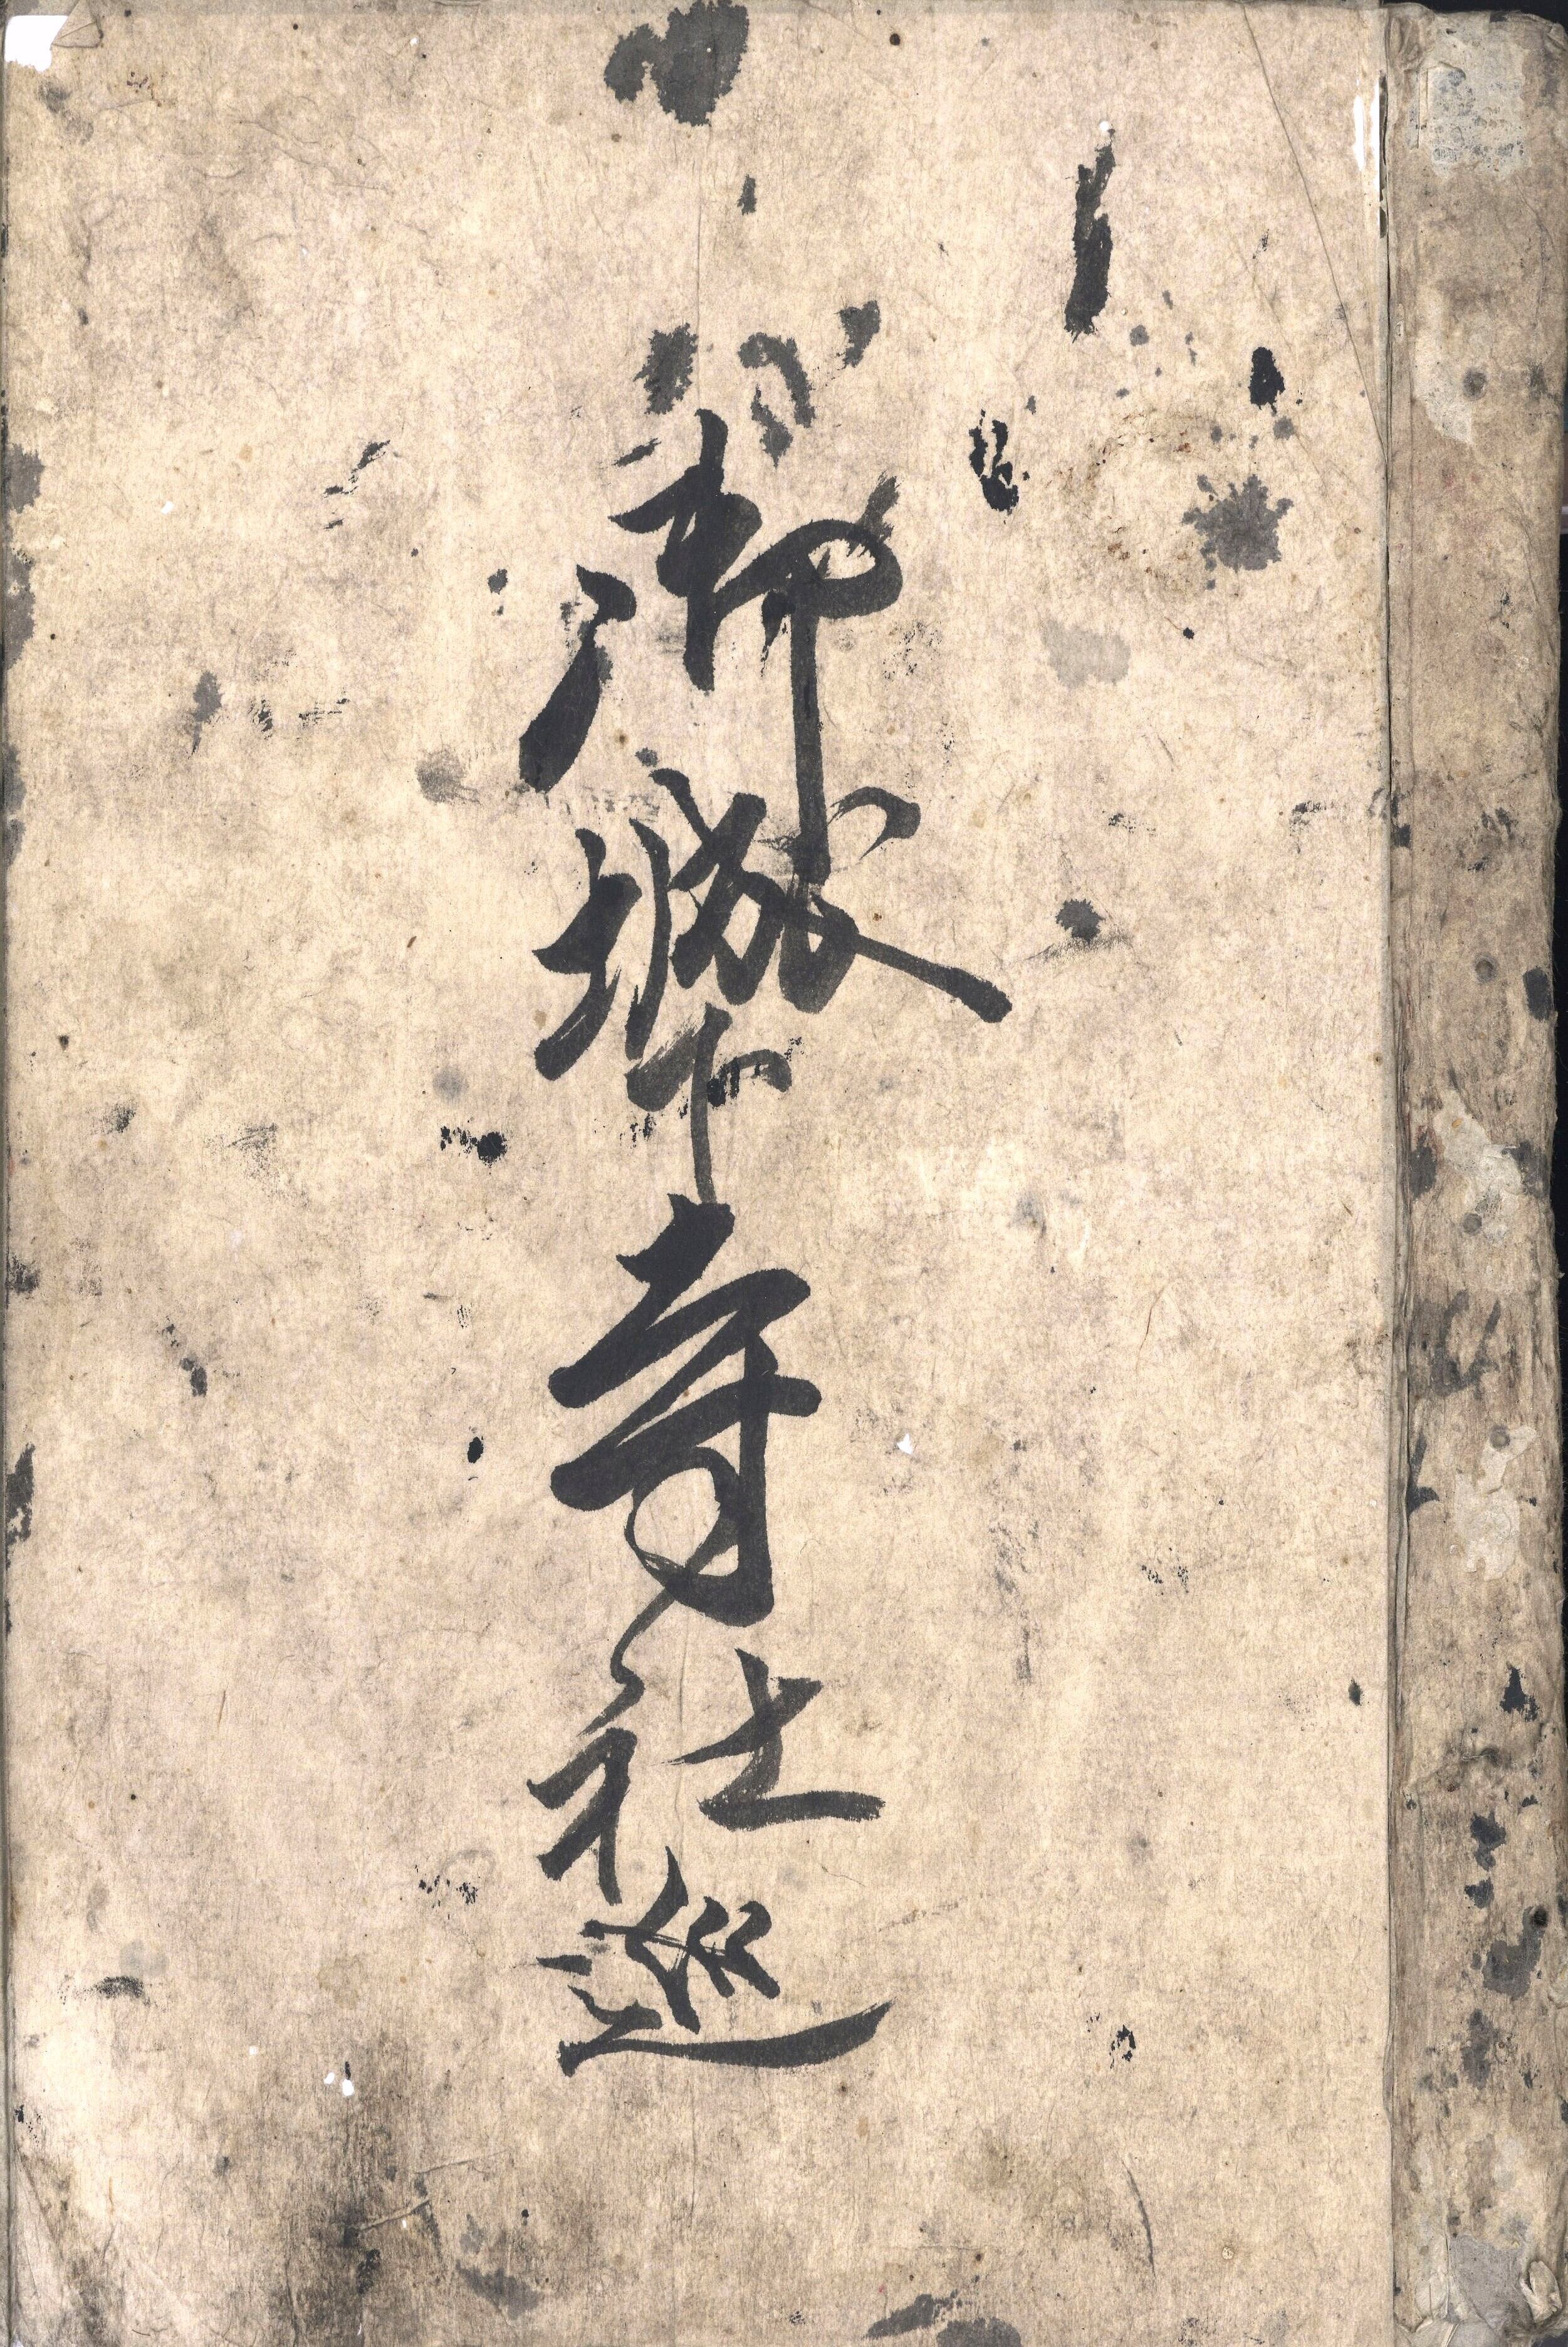 御城下寺社巡